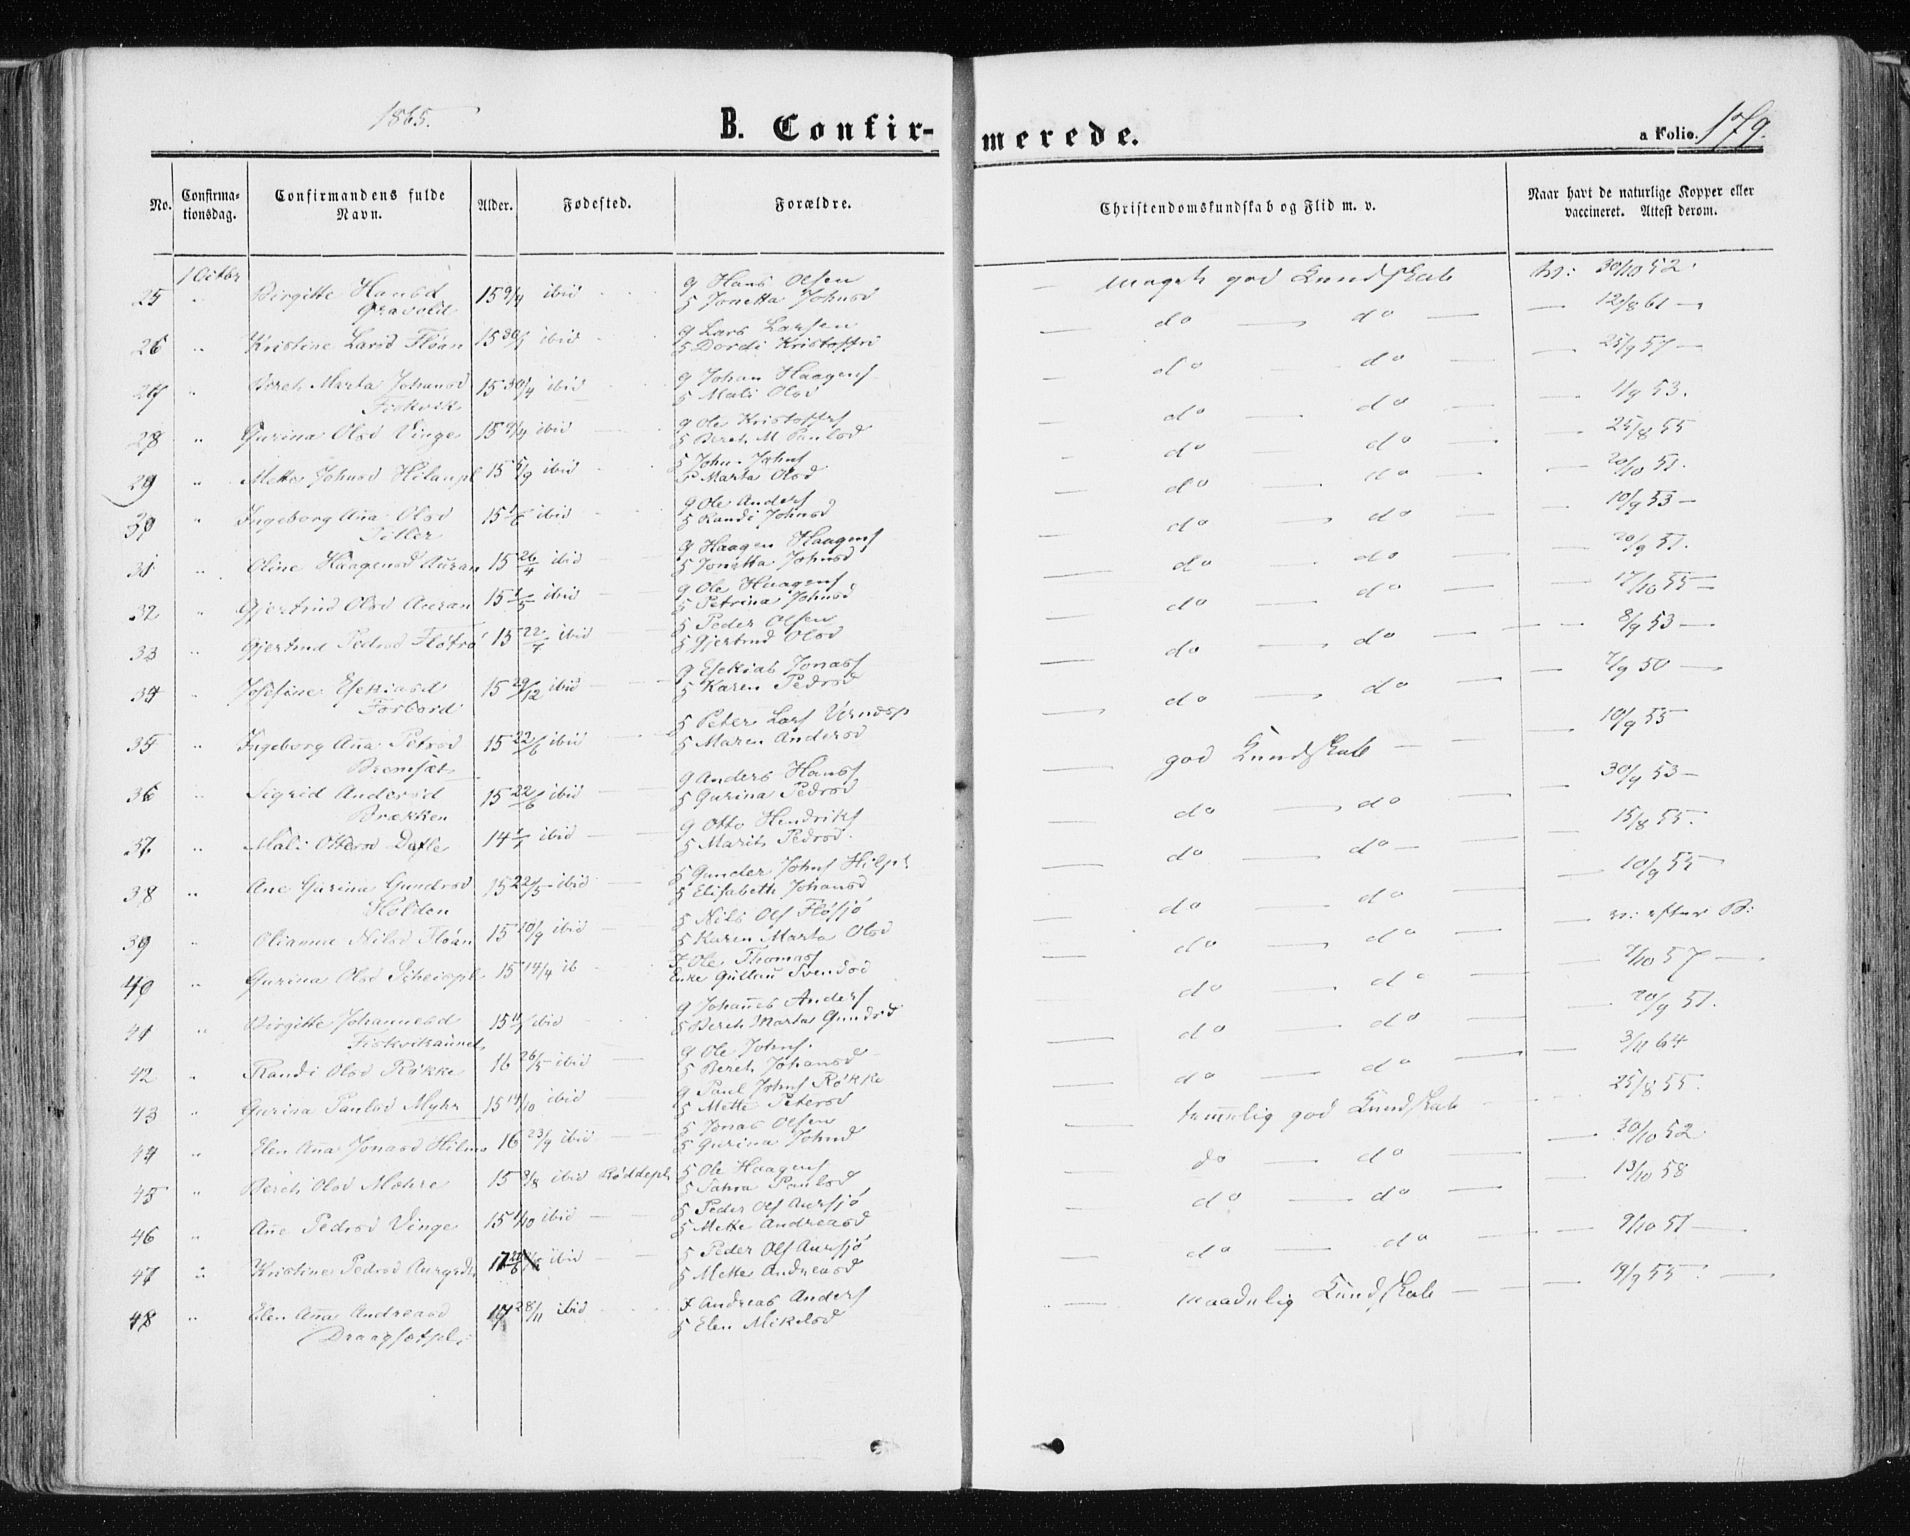 1865.
B. Confir-
merede.
a Folio. 179.
No.
Confirma-
tionsdag.
Confirmandens fulde
Navn.
Alder.
Fødested.
Forældre.
Christendomskundskab og Flid m. v.
Naar havt de naturlige Kopper eller
vaccineret. Attest derom.
1 Octbr
25 " Birgitte Hansd 15 9/4 ibid g Hans Olsen
Gravold 5 Jonetta Johnsd
— meget god Kundskab 30/10 52.
26 " Kristine Larsd Floan 15 ibid g Lars Larsen
5 Dordi Kristoffrd
— do — do — 12/8 61 —
27 " Bereth Marta Johansd 15 30/4 ibid g Johan Haagens
Fiskvik 5 Mali Olsd
— do — do — 25/9 57 —
28 " Gurina Olsd Vinge 15 ibid g Ole Kristoffrs
5 Bereth M Paulsd
— do — do — 1/9 53.
29 " Mette Johnsd Hilanpl 15 5/9 ibid 5 John Johns
5 Marta Olsd
— do — do — 25/8 55
30 " Ingeborg Aña Olsd 15 ibid g Ole Anders
Tiller 5 Randi Johnsd
— do — do — 20/10 51.
31 " Oline Haagensd Auran 15 26/4 ibid g Haagen Haagens
5 Jonetta Johnsd
— do — do — 10/9 53 —
32 " Gjertrud Olsd Auran 15 1/5 ibid g Ole Haagens
5 Petrina Johnsd
— do — do — 20/9 51.
33 " Gjertrud Pedrsd Fløtra 15 22/7 ibid 5 Peder Olsen
5 Gjertrud Olsd
— do — do — 17/10 55 —
34 " Josefine Esekiasd 15 29/12 ibid g Esekias Jonass
Forbord 5 Karen Pedrsd
— do — do — 8/9 53 —
35 " Ingeborg Aña Petrsd 15 22/6 ibid 5 Peter Lars
Bremsæt 5 Maren Andersd
— do — do — 7/9 50 —
36 " Sigrid Andersd 15 22/6 ibid g Anders Hans
Brækken 5 Gurina Pedrsd
— god Kundskab — 10/9 55
37. " Mali Ottersd Dafle 14 1/7 ibid g Otto Hendriks
5 Marith Pedrsd.
— do — do — 30/9 53 —
38 " Ane Gurina Gundrsd 15 22/5 ibid 5 Gunder Johns Hilpl
Holden 5 Elisabeth Johansd
— do — do — 15/8 55.
39 " Olianna Nilsd Floan 15 10/9 ibid 5 Nils Ols Flosjø
5 Karen Marta Olsd
— do — do — 10/9 55
40 " Gurina Olsd 15 14/4 ib F Ole Thomass
Enke Gullau Svendsd
— do — do — v: efter B:
41 " Birgitte Johannesd 15 ibid g Johañes Anders
Fiskvikaunet 5 Bereth Marta Gundrsd
— do — do — 7/10 57 —
42 " Randi Olsd Røkke 16 26/5 ibid g Ole Johns.
5 Bereth Johansd
— do — do — 20/9 51.
43 " Gurina Paulsd Myhr 15 14/10 ibid g Paul Johns Røkke
5 Mette Petersd
— do — do — 3/11 64
44 " Elen Aña Jonasd Hilmo 16 23/9 ibid 5 Jonas Olsen
5 Gurina Johnsd
— temmelig god Kundskab — 25/8 55.
45 " Bereth Olsd Mæhre 15 9/8 ibid Røddepl 5 Ole Haagens
5 Sahra Paulsd
— do — do — 30/10 52
46 " Añe Pedrsd Vinge 15 1/10 ibid 5 Peder Ols Aursjø
5 Mette Andreasd
— do — do — 13/10 58
47 " Kristine Pedrsd 17 ibid 5 Peder Ols Aursjø
5 Mette Andreasd
— do — do — 9/10 51 —
48 " Elen Aña Andreasd 17 28/11 ibid F Andreas Anders
Draagsætpl. 5 Elen Mikelsd
— maadelig Kundskab — 19/9 55. —